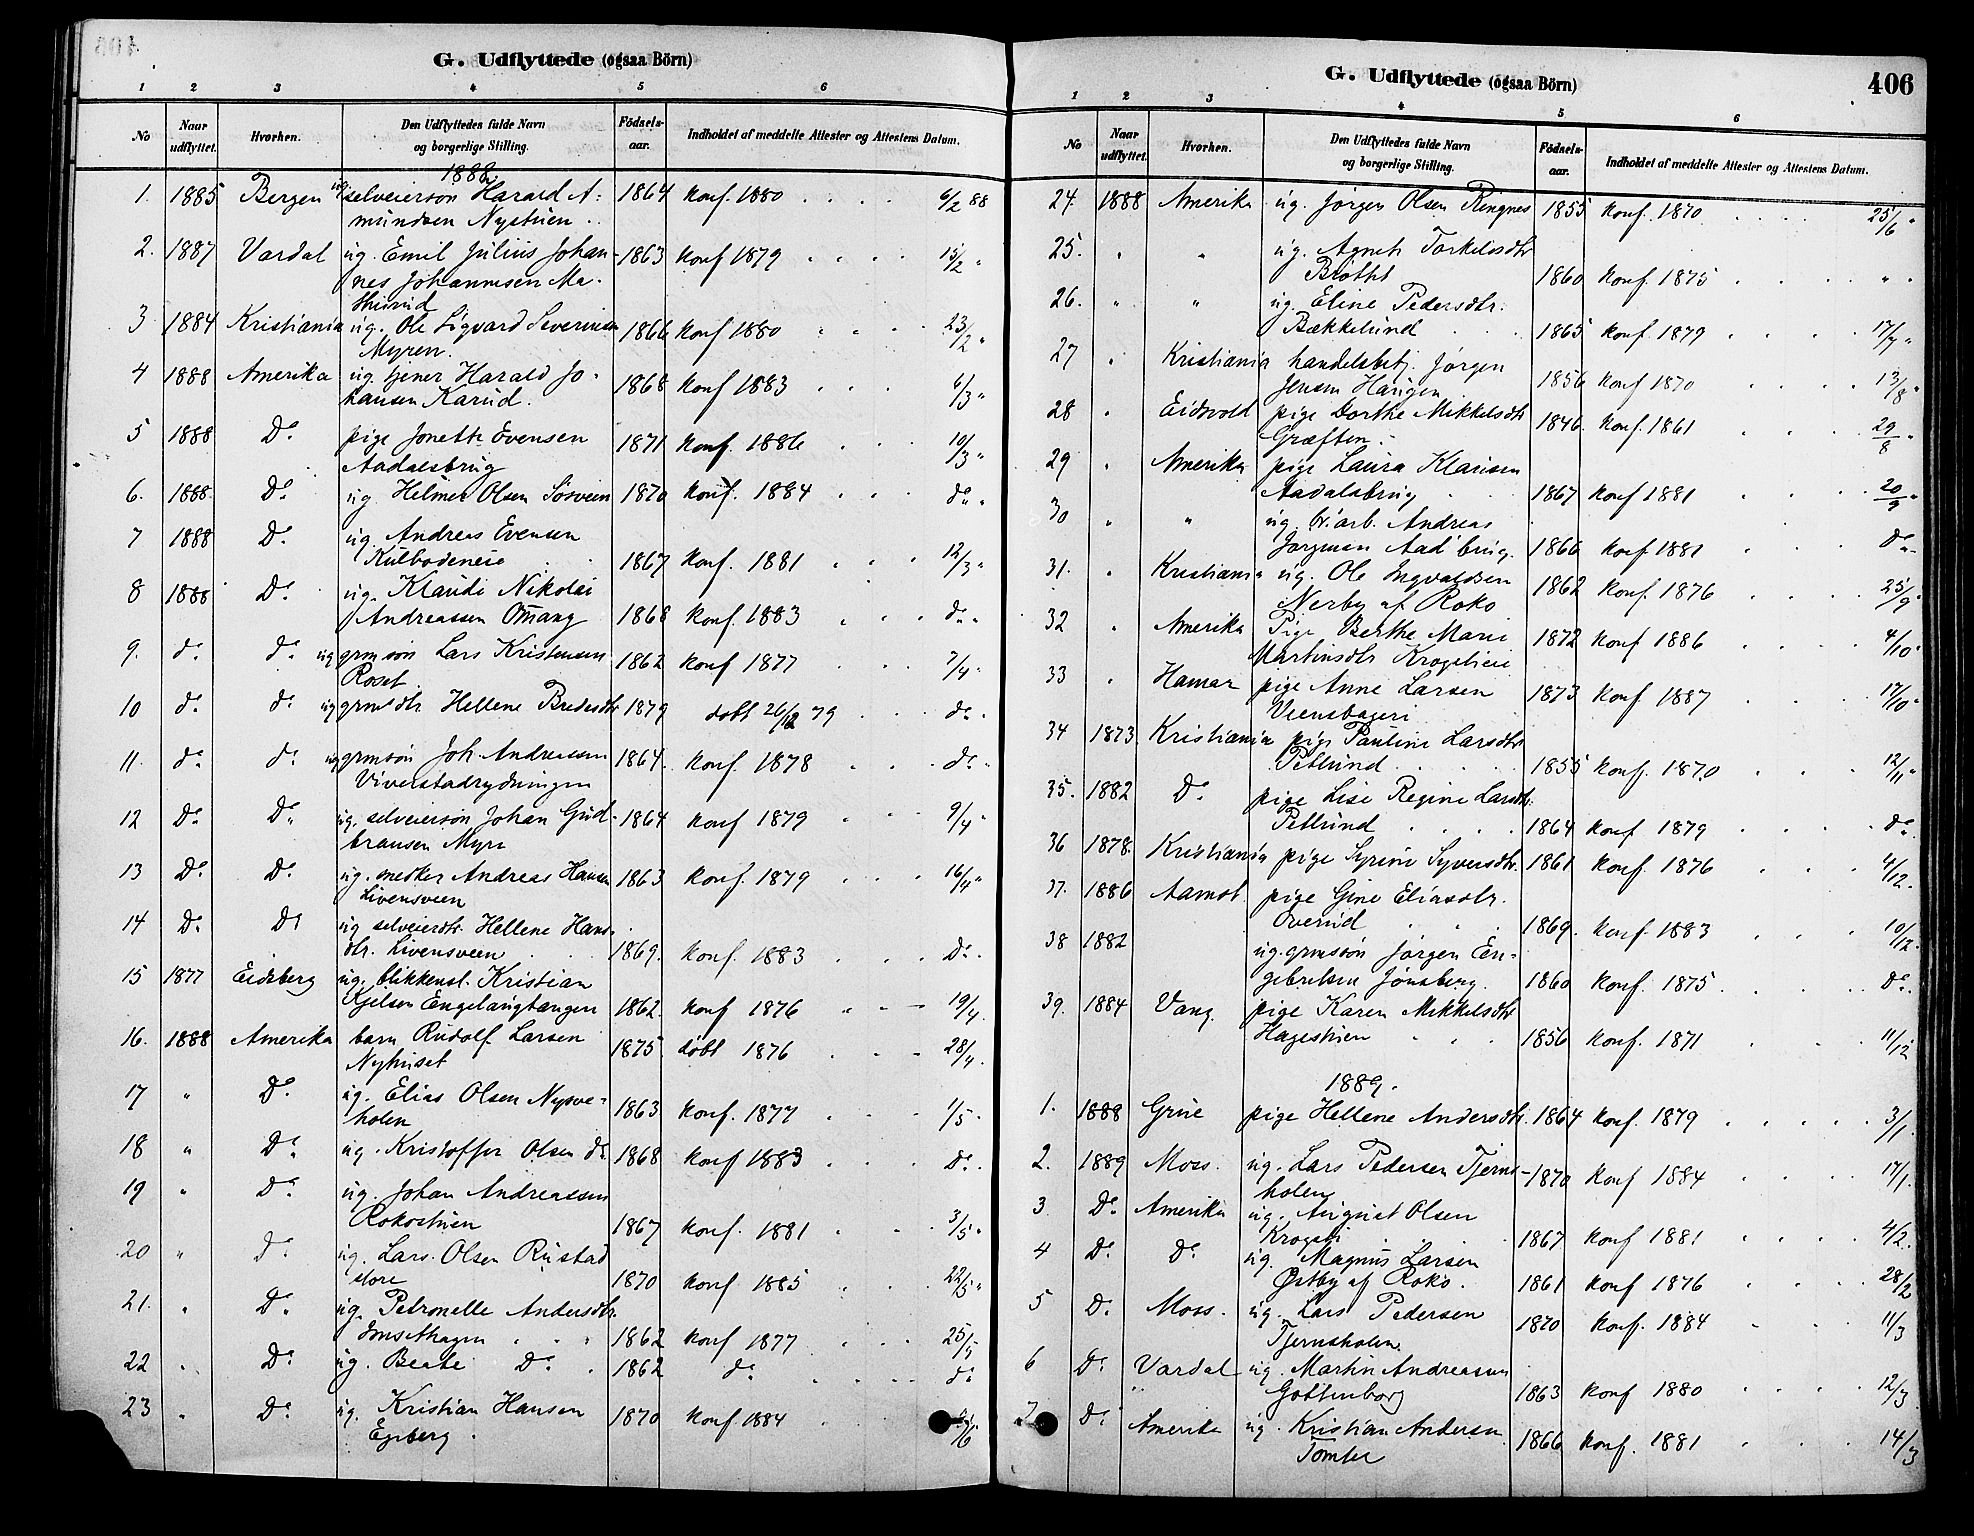 G. Udflyttede (ogsaa Börn)
1 2 3 4 5 6
No Naar udflyttet. Hvorhen. Den Udflyttedes fulde Navn og borgerlige Stilling. Födsels-aar. Indholdet af meddelte Attester og Attestens Datum.
1888.
1. 1885 Bergen ug selveiersön Harald A- 1864 konf. 1880 6/2 88
mundsen Nystuen
2. 1887 Vardal ug. Emil Julius Johan- 1863 konf 1879 15/2 "
nes Johannesen Ma-
thisrud
3 1884 Kristiania ug. Ole Sigvard Severinsen 1866 konf 1880 23/2 "
Myren.
4 1888 Amerika ug. tjener Harald Jo- 1868 konf 1883 6/3 "
hansen Karud.
5 1888 Do pige Jonette Evensen 1871 konf. 1886 10/3 "
Aadalsbrug
6. 1888 Do ug. Helmer Olsen Sösveen 1870 konf. 1884 do "
7 1888 Do ug. Andreas Evensen
Kulbodeneie 1867 konf. 1881 12/3 "
8 1888 Do ug. Klaudi Nikolai
Andreassen Omang 1868 konf. 1883 do "
9. do do ug grmsön Lars Kristensen 1862 konf 1877 7/4 "
Roset
10 do do ug grmdtr Hellene Bredesdtr 1879 döbt 26/12 79 do "
11. do do ug grmsön Joh. Andreassen 1864. konf. 1878 do "
Viverstadrydningen
12 Do Do ug. selveiersön Johan Gud- 1864 konf 1879 9/4 "
bransen Myre
13 Do Do ug. snedker Andreas Hansen 1863 konf. 1879 16/4 "
Livensveen
14 Do Do ug selveierdtr. Hellene Hans-
dtr. Livensveen 1869. konf. 1883 Do
15 1877 Eidsberg ug. blikkensl. Kristian
Kjelsen Engelaugtangen 1862. konf 1876 19/4.
16. 1888 Amerika barn Rudolf Larsen 1875 döbt 1876 28/4.
Nyhuset
17 " Do ug. Elias Olsen Nysve- 1863 konf. 1877 1/5
holen
18 " Do ug. Kristoffer Olsen do 1868 konf 1883 Do
19 " Do ug. Johan Andreassen
Rokostuen 1867 konf. 1881 3/5 "
20 " Do ug. Lars Olsen Rustad
store 1870 konf. 1885 22/5 "
21. " Do ug. Petronelle Andersdtr.
Imsethagen 1862 konf 1877 25/5
22 " Do ug. Beate Do 1862 do do
23 " Do ug. Kristian Hansen 1870 konf 1884
Egeberg
G. Udflyttede (ogsaa Börn) 406
1 2 3 4 5 6
No Naar udflyttet. Hvorhen. Den Udflyttedes fulde Navn og borgerlige Stilling. Födsels-aar. Indholdet af meddelte Attester og Attestens Datum.
24. 1888 Amerika ug. Jörgen Olsen Ringnes 1855 konf. 1870 25/6 "
25. " " ug. Agnete Torkelsdtr
Bröttet 1860 konf. 1875 " "
26. " " ug. Eline Pedersdtr.
Bækkelund 1865 konf. 1879 17/7 "
27 " Kristiania handelsbetj. Jörgen
Jensen Haugen 1856 konf 1870 13/8 "
28 " Eidsvold pige Dorthe Mikkelsdtr 1846 konf. 1861 29/8 "
Græften
29 " Amerika pige Laura Klausen
Aadalsbrug 1867 konf 1881 20/9 "
30 " " ug. br.arb. Andreas
Jörgensen Aad'brug. 1866 konf 1881 do "
31. " Kristiania ug. Ole Ingvaldsen 1862 konf. 1876 25/9 "
Nerby af Roko
32 " Amerika Pige Berthe Marie 1872 konf. 1886 4/10 "
Martinsdtr Krogstieie
33 " Hamar pige Anne Larsen 1873 konf. 1887 17/10 "
Veensbageri
34 1873 Kristiania pige Pauline Larsdtr
Petlund 1855 konf. 1870 12/11 "
35. 1882 Do pige Lise Regine Larsdtr.
Petlund 1864 konf 1879 do
36 1878. Kristiania pige Syrine Syversdtr. 1861 konf. 1876 4/12.
37. 1886 Aamot pige Gine Eliasdtr.
Overud 1869. konf. 1883 10/12.
38 1882 ug. grmsön Jörgen En-
gebretsen Jönsberg. 1860 konf. 1875 Do
39. 1884 Vang. pige Karen Mikkelsdtr
Hagestuen 1856 konf. 1871 11/12
1889.
1. 1888 Grue pige Hellene Andersdtr. 1864 konf. 1879 3/1.
2. 1889 Moss. ug. Lars Pedersen Tjerns- 1870 konf 1884 17/1.
holen
3 Do Amerika ug. August Olsen
Krogsti 1867 konf 1881 4/2.
4 Do Do ug. Magnus Larsen
Østby af Roko. 1861 konf 1876 28/2
5 Do Moss. ug. Lars Pedersen
Tjernsholen. 1870 konf. 1884 11/3
6 Do Vardal ug. Martin Andreassen
Gottenborg 1863 konf 1880 12/3
7 Do Amerika ug. Kristian Andersen
Tomter 1866 konf. 1881 14/3